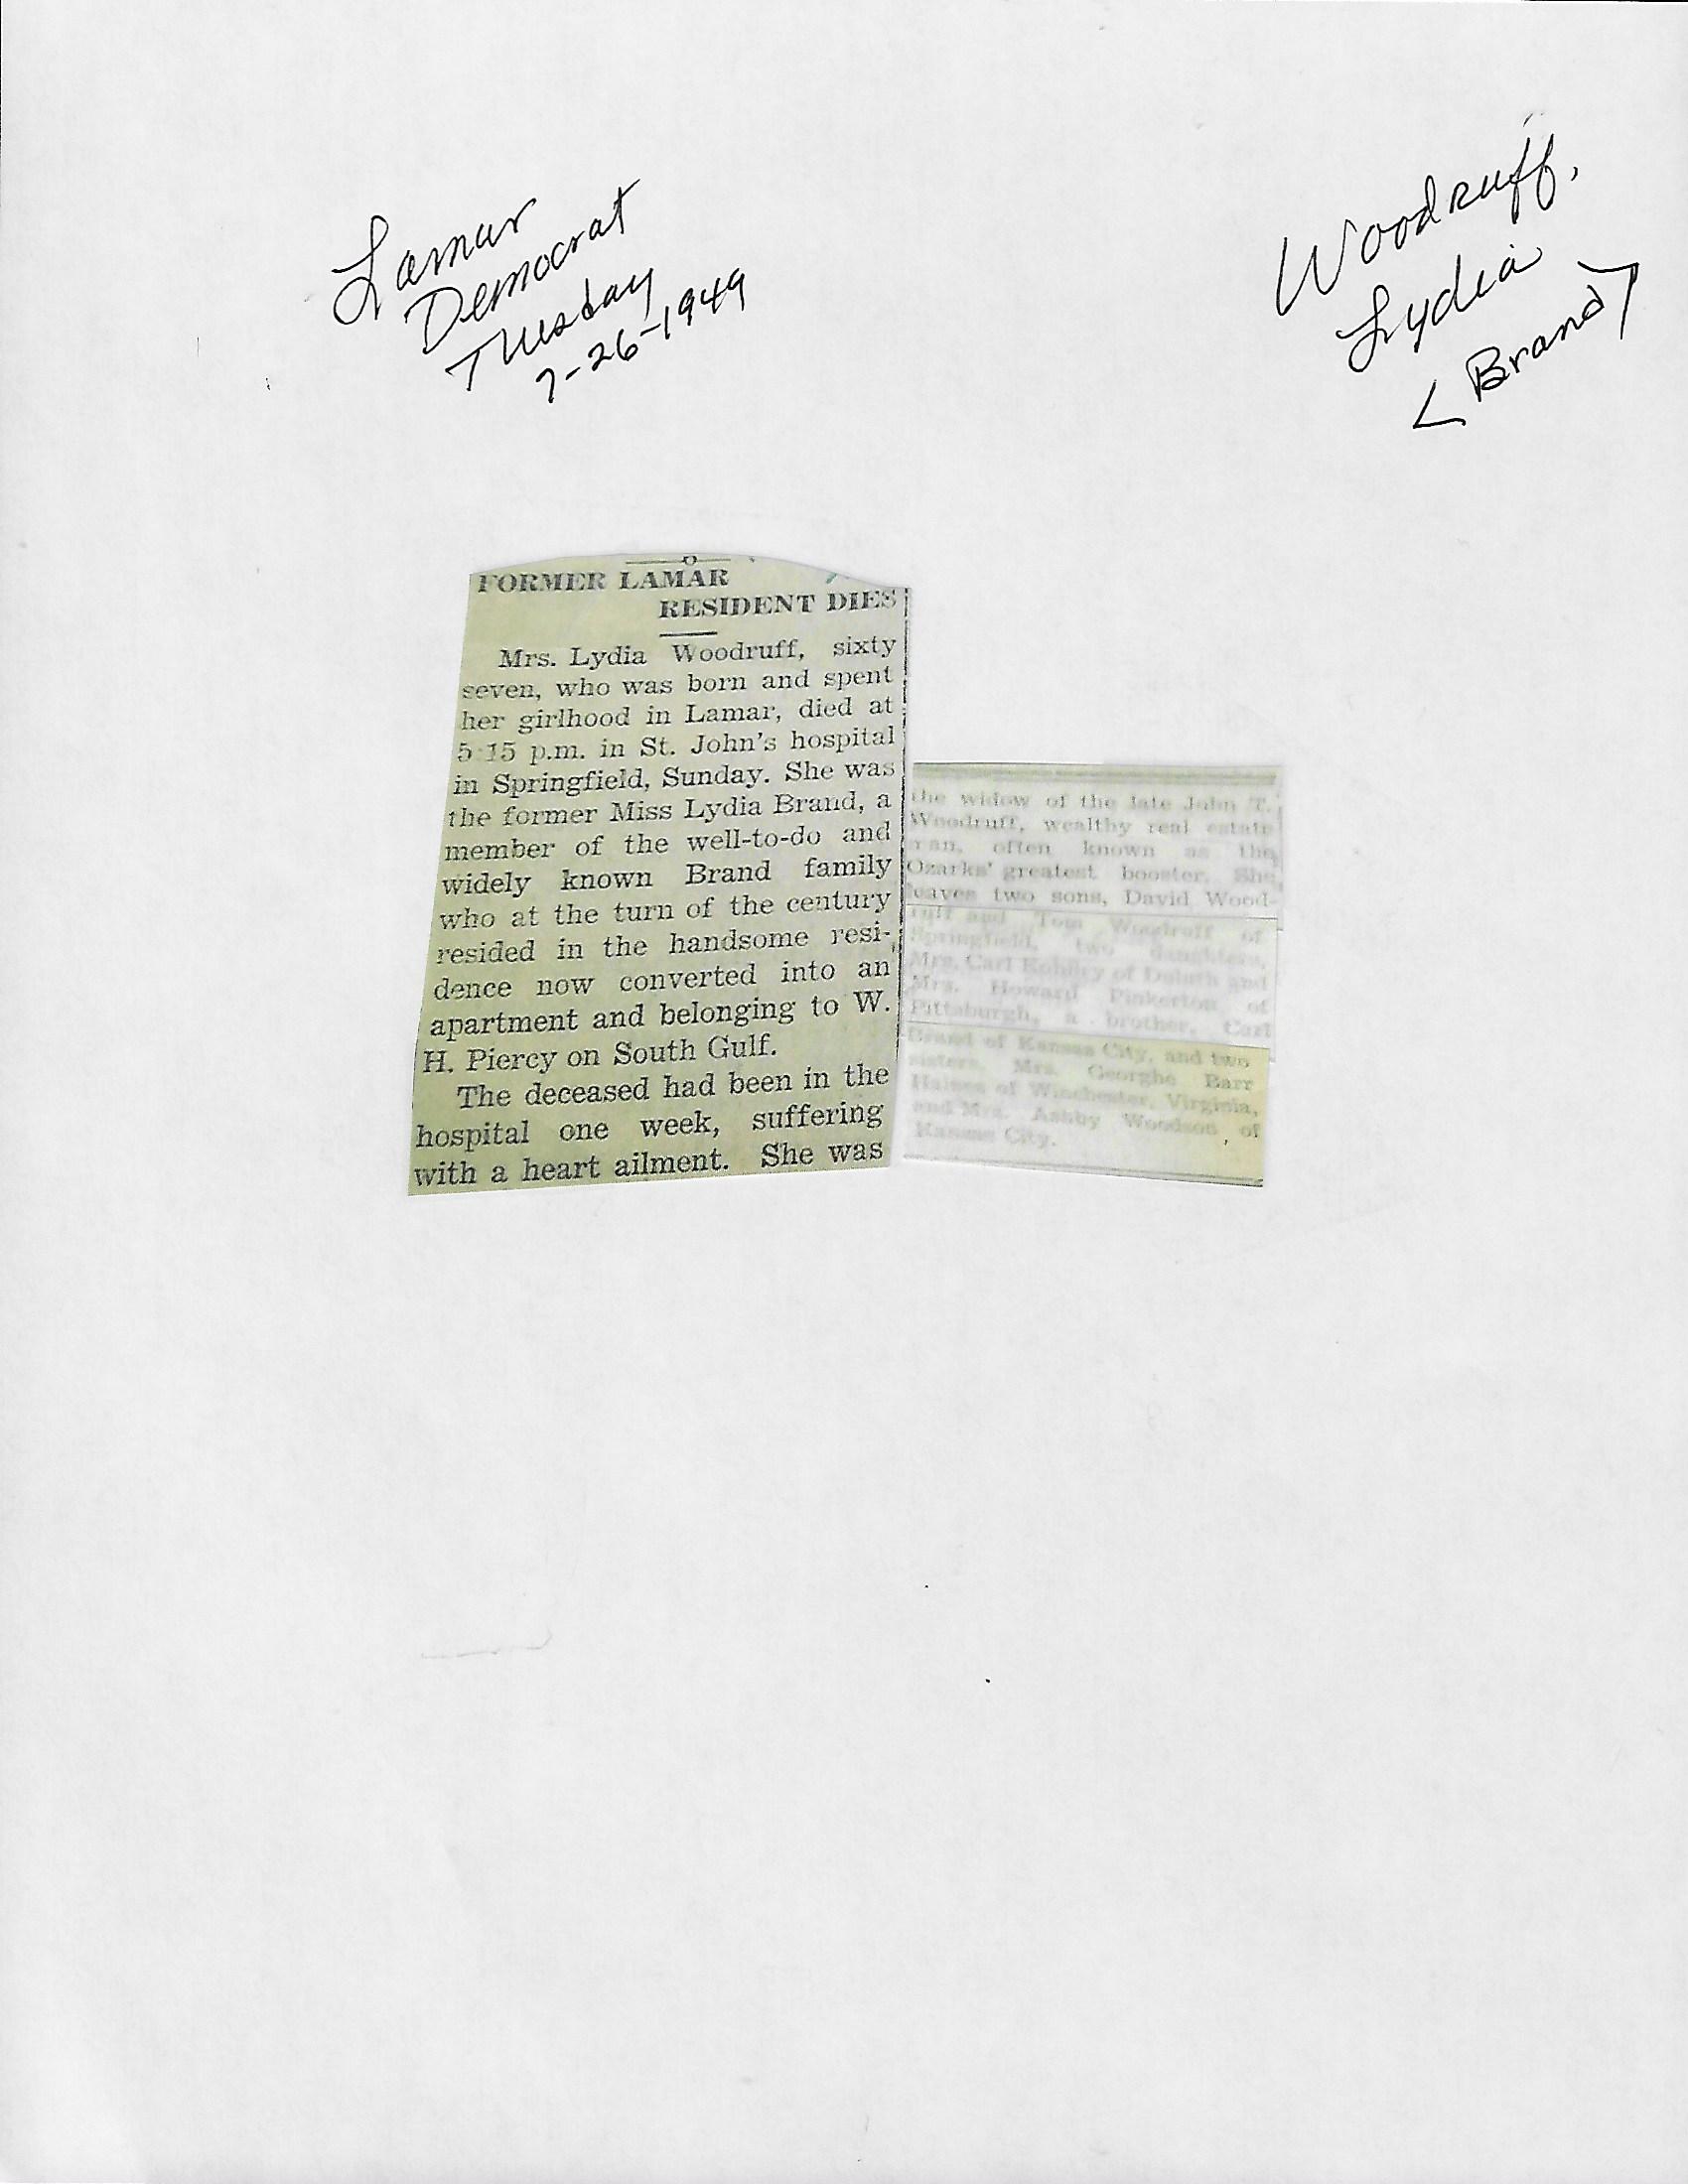 Lamar
Democrat
Tuesday
7-26-1949
Woodruff,
Lydia
< Brand >
FORMER LAMAR
RESIDENT DIES
Mrs. Lydia Woodruff, sixty
seven, who was born and spent
her girlhood in Lamar, died at
5:15 p.m. in St. John's hospital
in Springfield, Sunday. She was
the former Miss Lydia Brand, a
member of the well-to-do and
widely known Brand family
who at the turn of the century
resided in the handsome resi-
dence now converted into an
apartment and belonging to W.
H. Piercy on South Gulf.
The deceased had been in the
hospital one week, suffering
with a heart ailment. She was
the widow of the late John T.
Woodruff, wealthy real estate
man, often known as the
Ozarks' greatest booster. She
leaves two sons, David Wood-
ruff and Tom Woodruff of
Springfield, two daughters,
Mrs. Carl of Duluth and
Mrs. Howard Pinkerton of
Pittsburgh, a brother, Carl
Brand of Kansas City, and two
sisters, Mrs. Georghe Barr
Haines of Winchester, Virginia,
and Mrs. Ashby Woodson of
Kansas City.